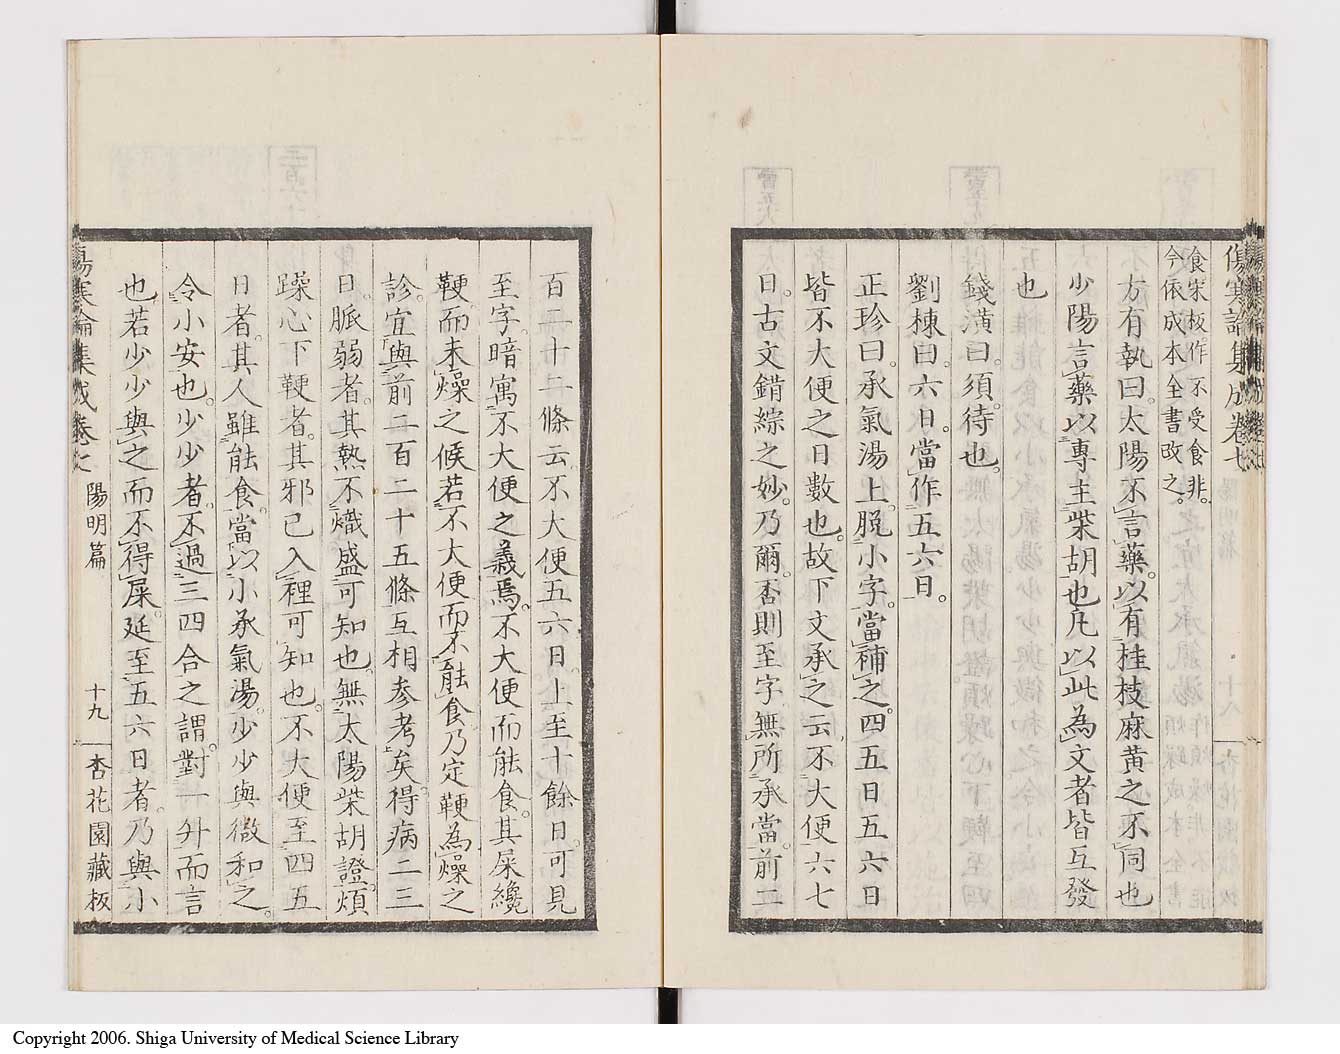 傷寒論集成卷七
食宋板作不受食非。
今依成本全書改之。
方有執曰。太陽不言藥。以有桂枝麻黄之不同也
少陽言藥以專主柴胡也凡以此為文者皆互發
也
錢潢曰。須待也。
劉棟曰。六日。當作五六日。
正珍曰。承氣湯上。脱小字。當補之。四五日五六日
皆不大便之日數也。故下文承之云不大便六七
日。古文錯綜之妙。乃爾。否則至字無所承當。前二
百二十二條云。不大便五六日。上至十餘日。可見
至字。暗寓不大便之義焉。不大便而能食。其屎纔
鞕而未燥之候。若不大便而不能食乃定鞕為燥之
診。宜與前二百二十五條互相參考矣。得病二三
日。脈弱者。其熱不熾盛可知也。無太陽柴胡證。煩
躁心下鞕者。其邪已入裡可知也。不大便至四五
日者。其人雖能食。當以小承氣湯。少少與微和之。
令小安也。少少者。不過三四合之謂。對一升而言
也若少少與之而不得屎。延至五六日者。乃與小
傷寒論集成卷七
陽明篇
十九
杏花園藏板
Copyright 2006. Shiga University of Medical Science Library